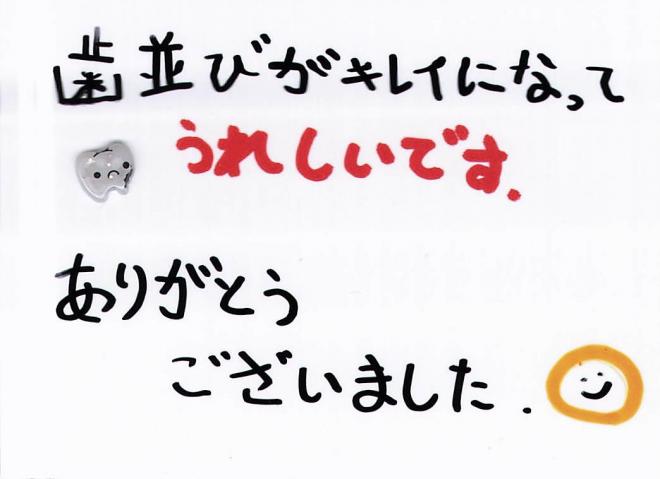 歯並びがキレイになって
うれしいです.
ありがとう
ございました.